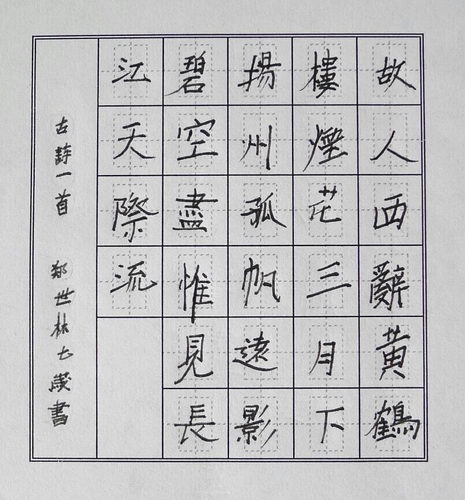 故人西辭黃鶴
樓煙花三月下
揚州孤帆遠影
碧空盡惟見長
江天際流
古詩一首 鄭世林七歲書